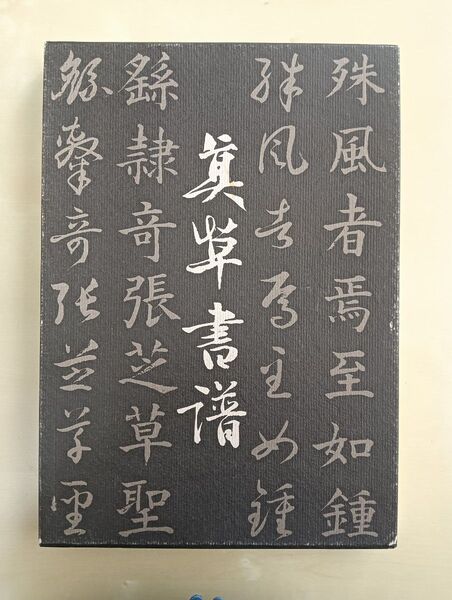 殊風者焉至如鍾
殊風者焉至如鍾
真草書譜
繇隸奇張芝草聖
繇隸奇張芝草聖